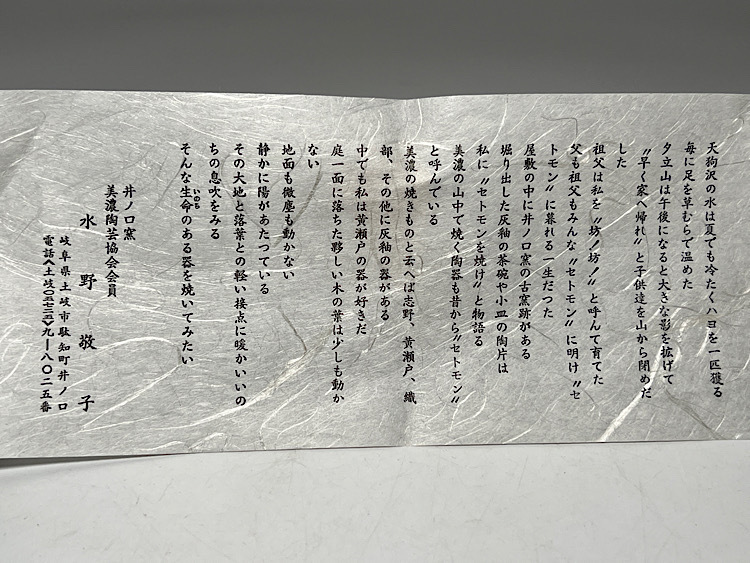 天狗沢の水は夏でも冷たくハヨを一匹獲る
毎に足を草むらで温めた
夕立山は午後になると大きな影を拡げて
〝早く家へ帰れ〟と子供達を山から閉めだ
した
祖父は私を〝坊ノ坊ノ〟と呼んで育てた
父も祖父もみんな〝セトモン〟に明け〝セ
トモン〟に暮れる一生だつた
屋敷の中に井ノ口窯の古窯跡がある
堀り出した灰釉の茶碗や小皿の陶片は
私に〝セトモンを焼け〟と物語る
美濃の山中で焼く陶器も昔から〝セトモン〟
と呼んでいる
美濃の焼きものと云へば志野、黄瀬戸、織
部、その他に灰釉の器がある
中でも私は黄瀬戸の器が好きだ
庭一面に落ちた夥しい木の葉は少しも動か
ない
地面も微塵も動かない
静かに陽があたつている
その大地と落葉との軽い接点に暖かいいの
ちの息吹をみる
そんな生命いのちのある器を焼いてみたい
井ノ口窯
美濃陶芸協会会員
水野敬子
岐阜県土岐市駄知町井ノ口
電話〈土岐〇五七二五〉九ー八〇二五番